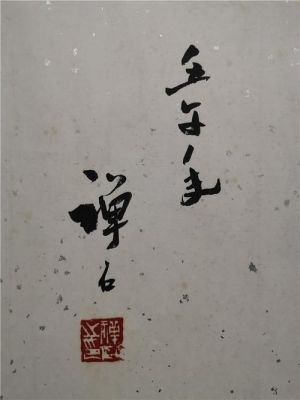 壬午年
禅石